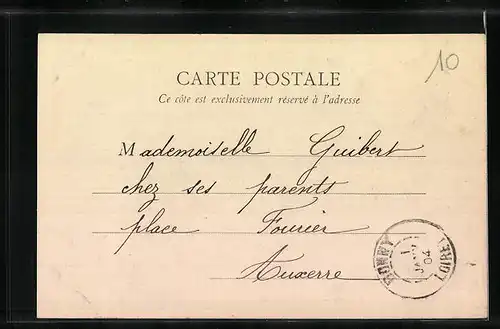 10
CARTE POSTALE
Ce côte est exclusivement réservé à l'adresse
Mademoiselle Guibert
chez ses parents
place Fourier
Auxerre
BONNY
1
JANV
04
LOIRET